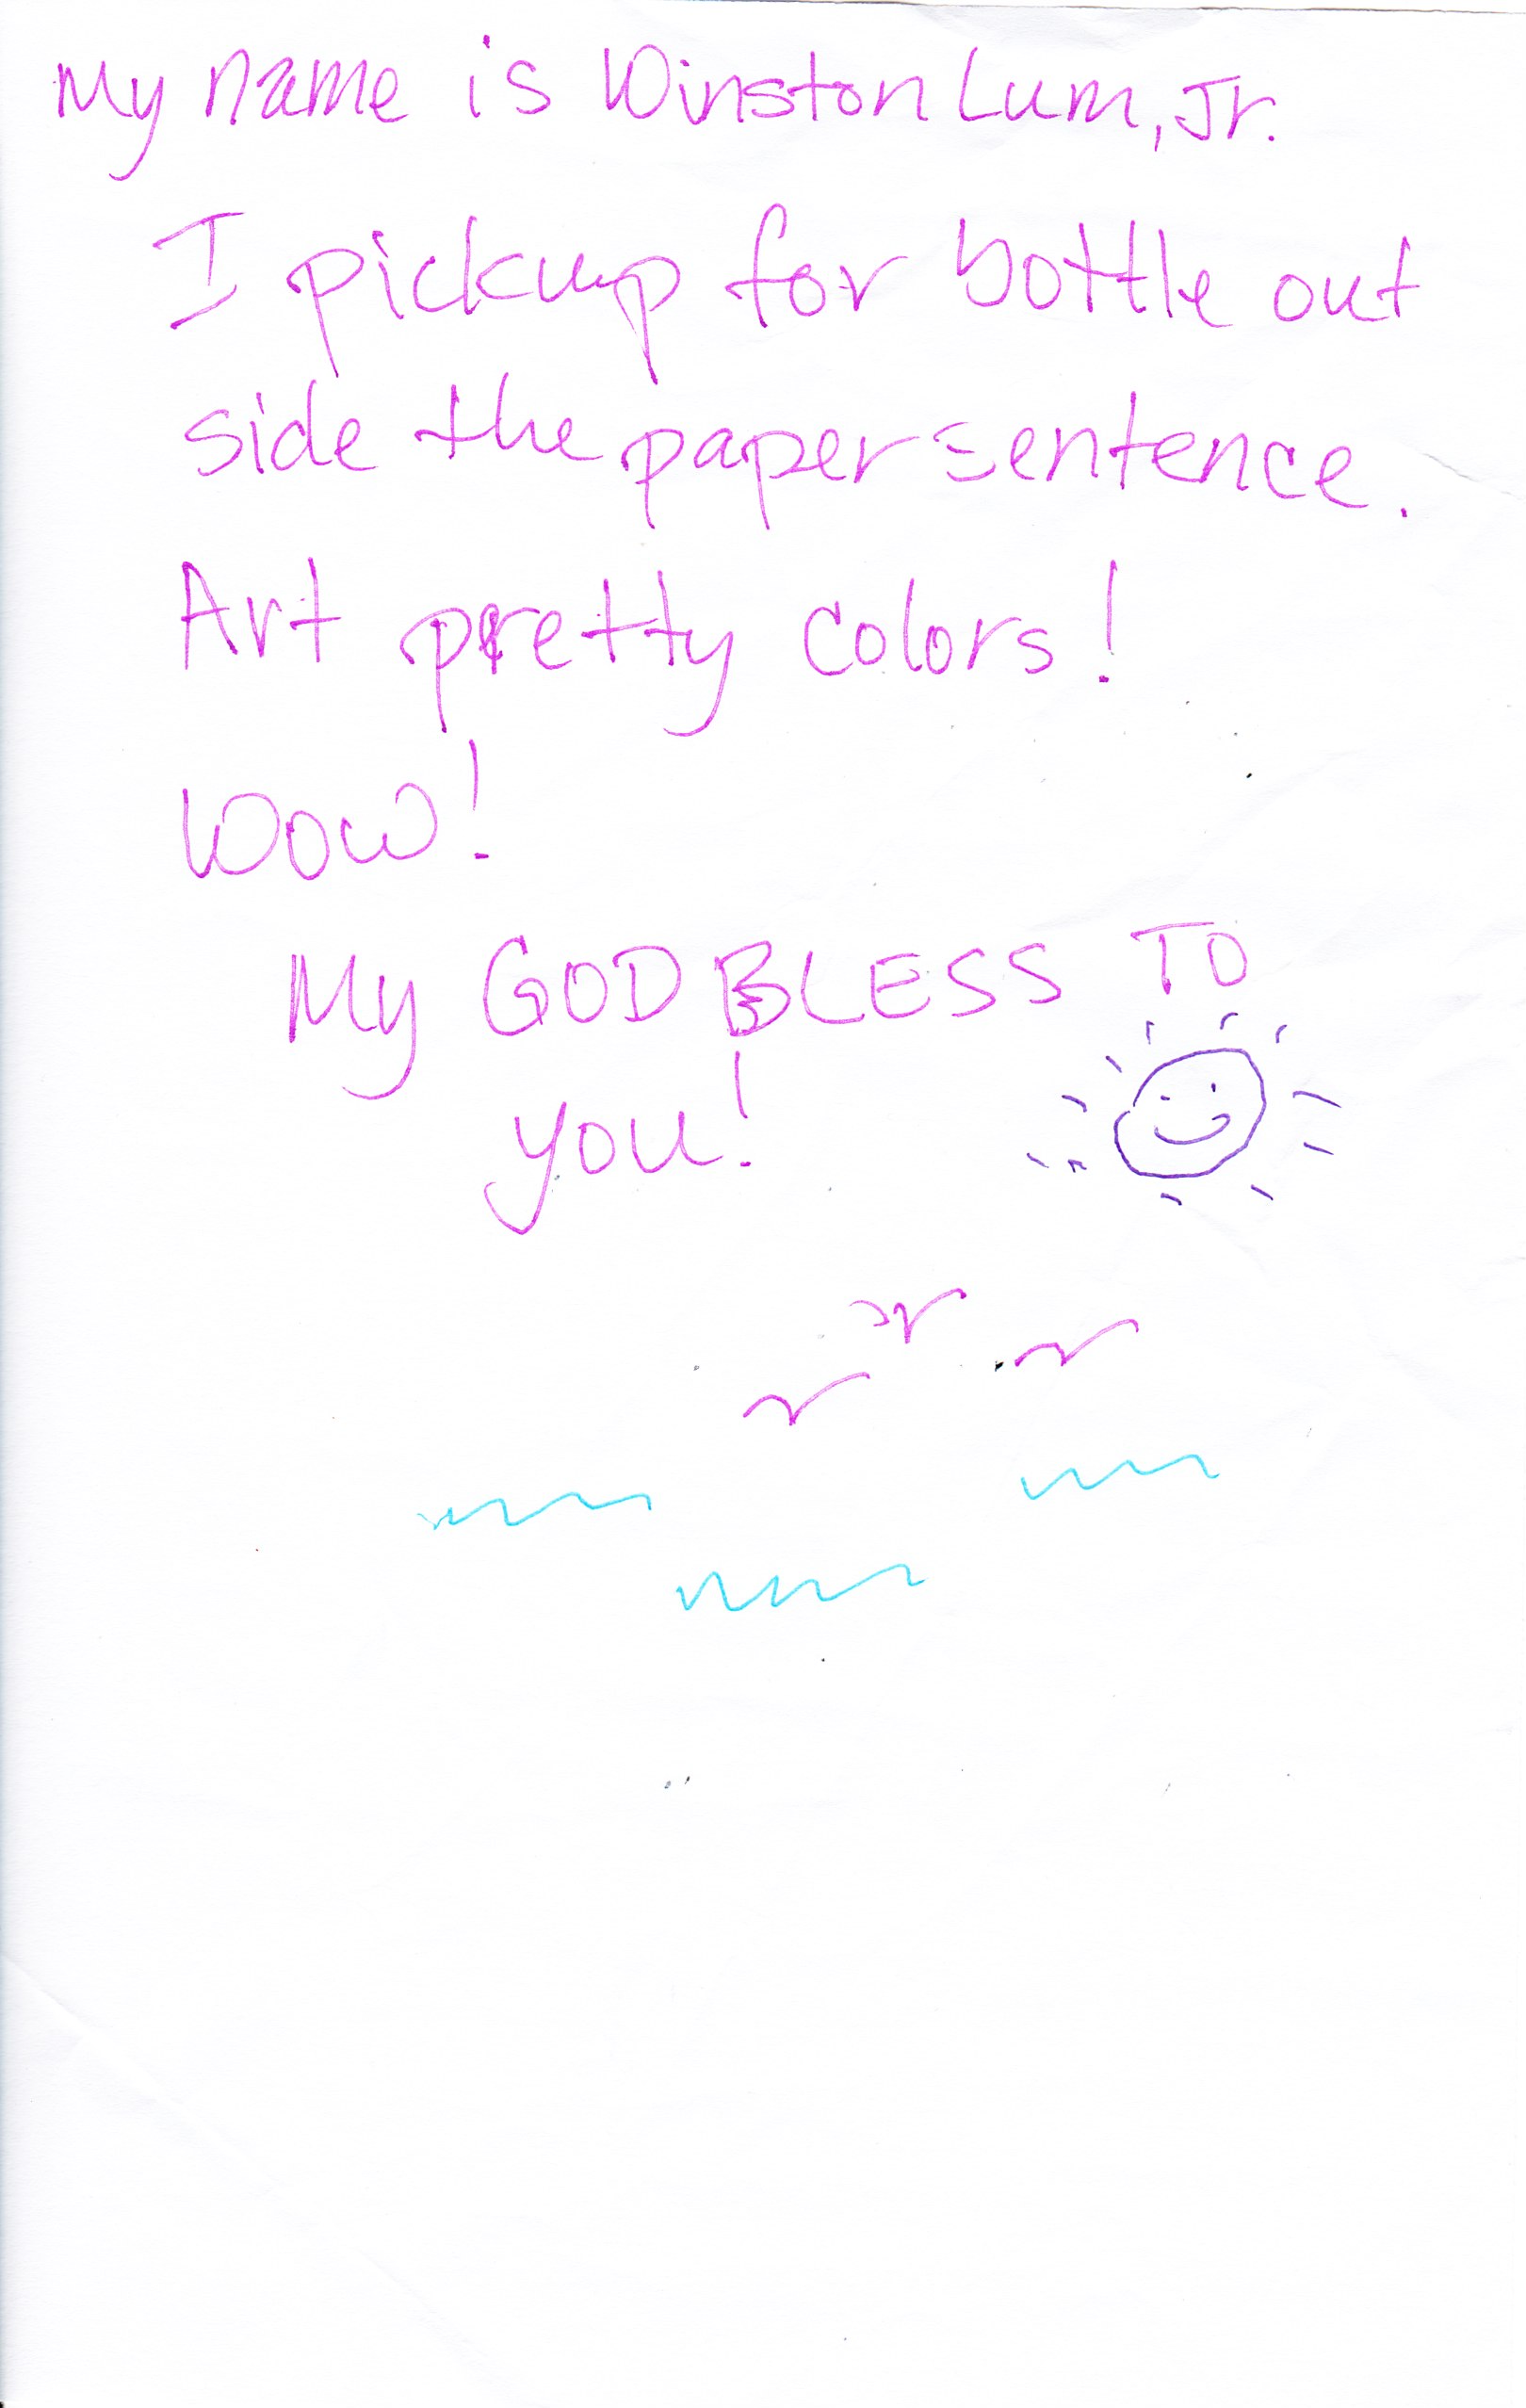 My name is Winston Lum, Jr.
I pickup for bottle out
side the paper sentence.
Art pretty colors!
Wow!
My GOD BLESS TO
you!